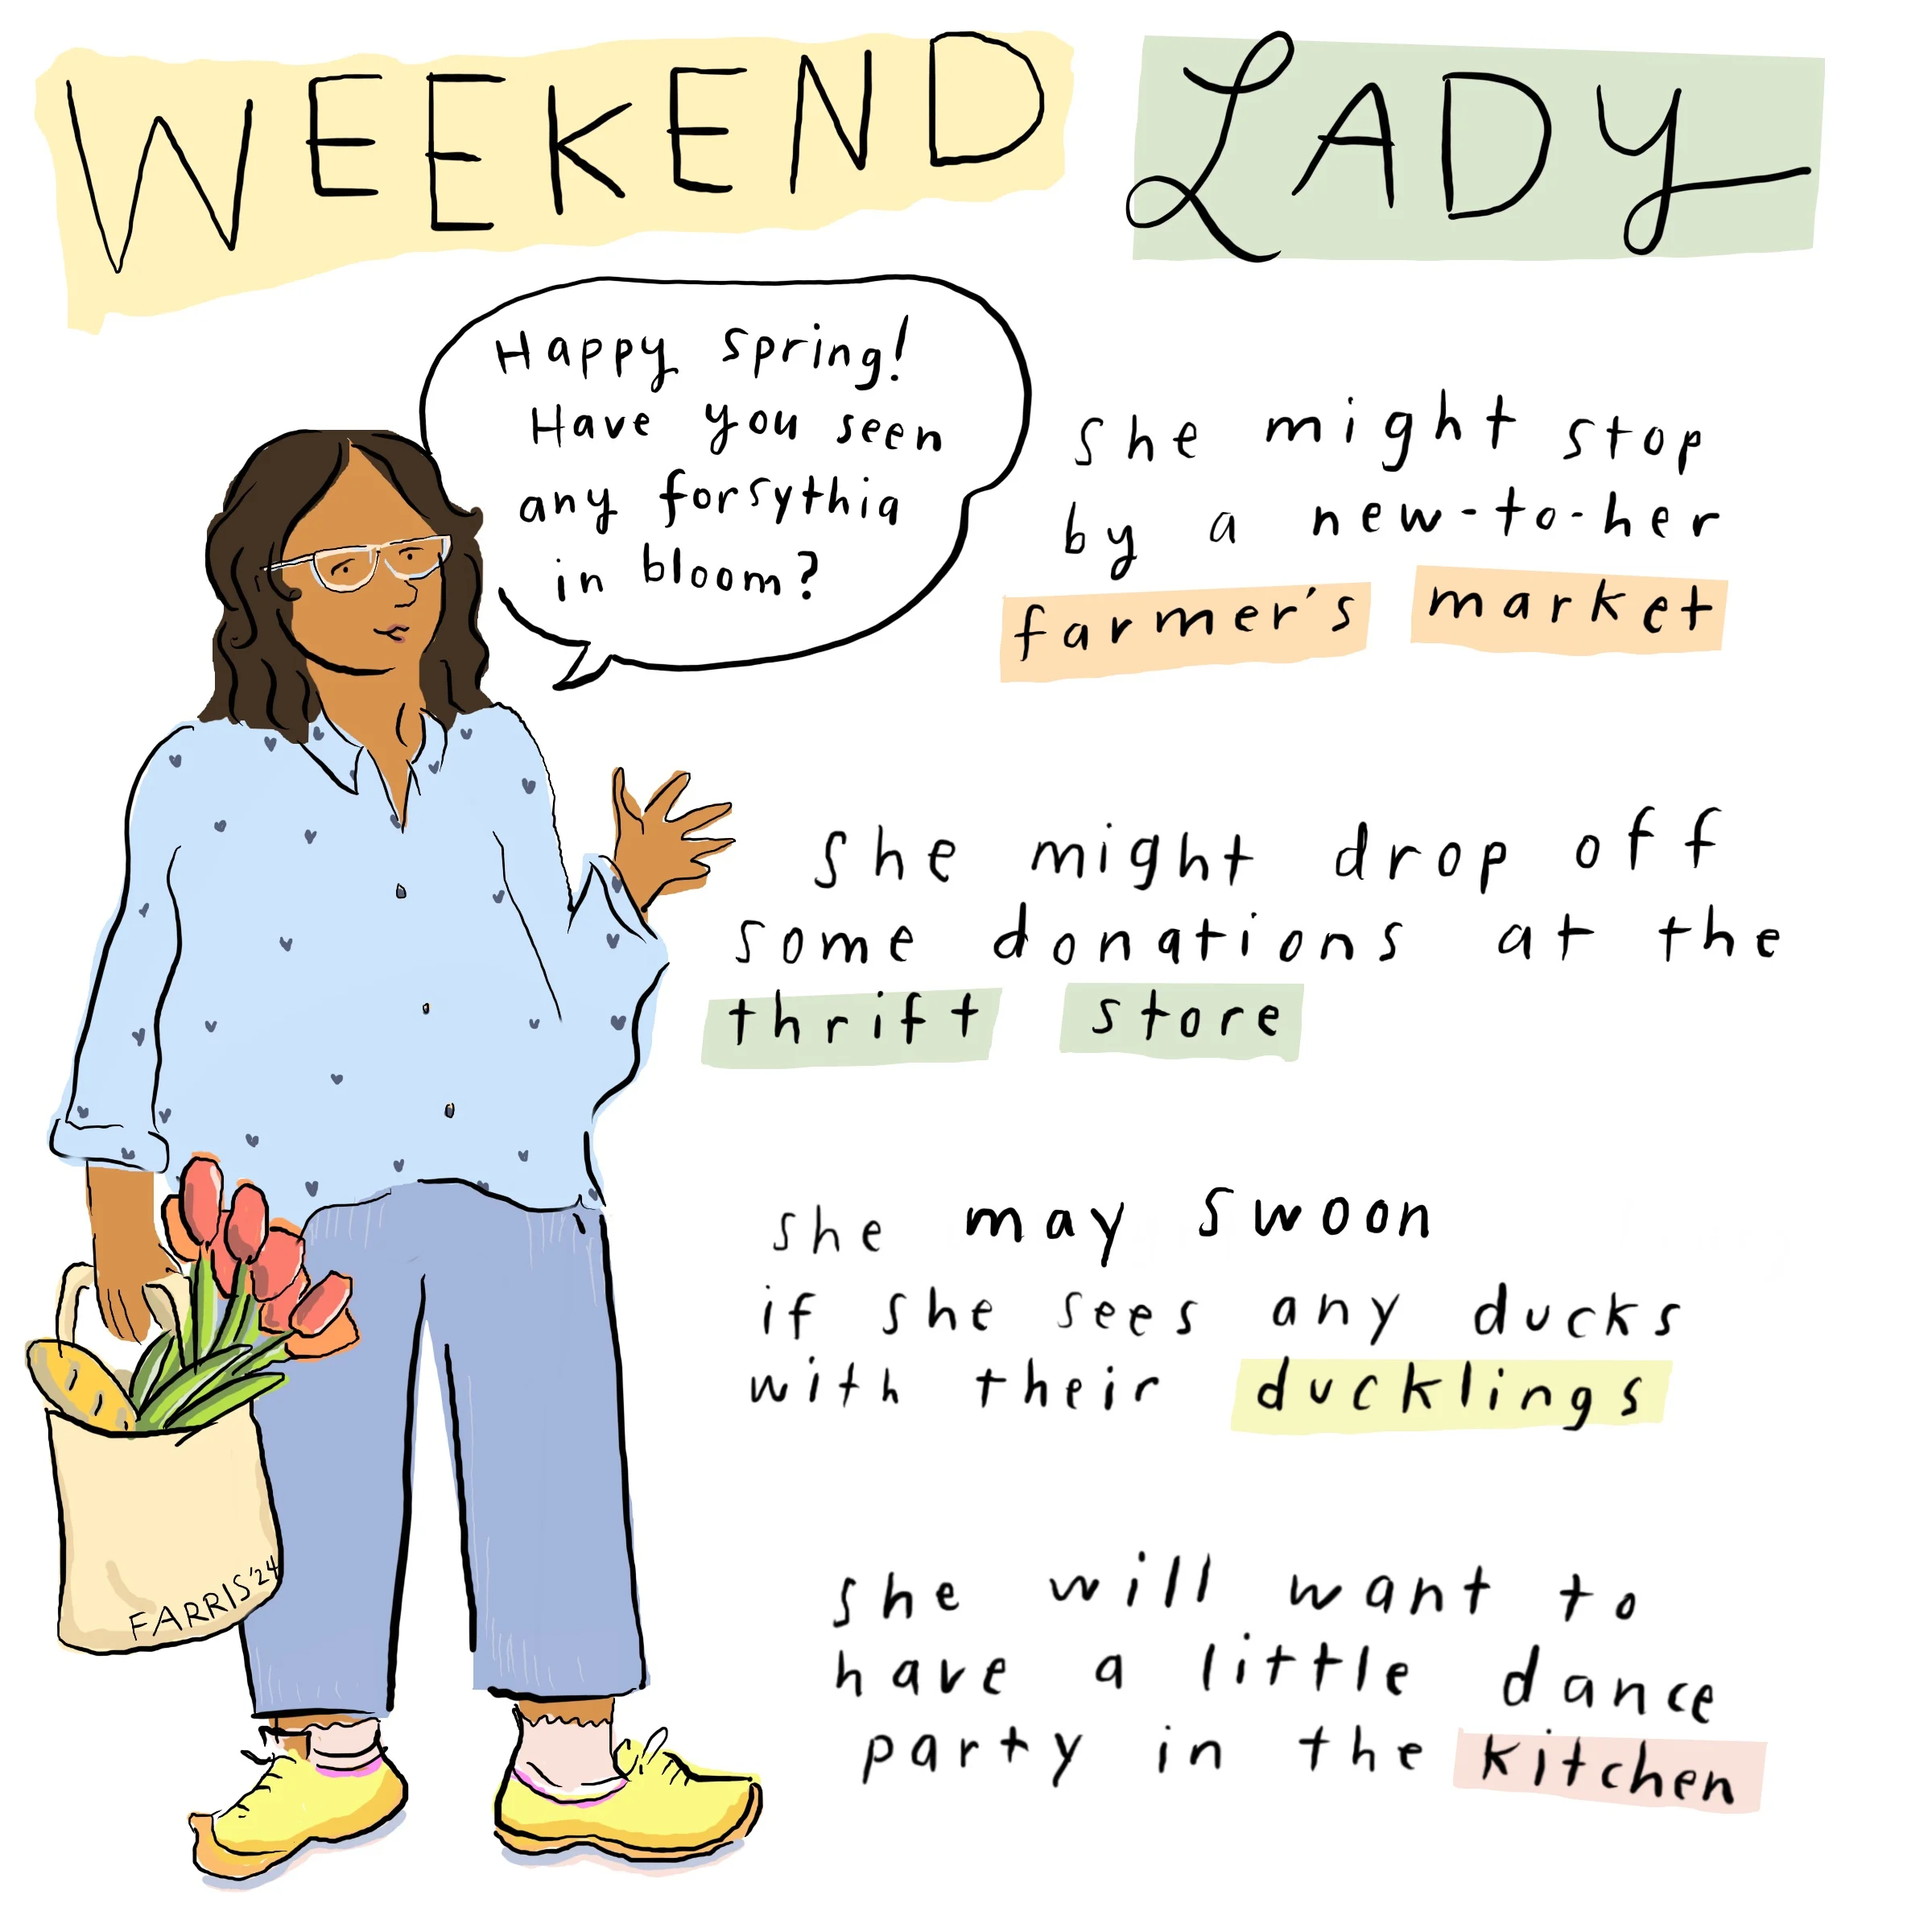 WEEKEND LADY
Happy Spring!
Have you seen
any forsythia
in bloom?
She might stop
by a new-to-her
farmer's market
She might drop off
some donations at the
thrift store
She may swoon
if she sees any ducks
with their ducklings
She will want to
have a little dance
party in the kitchen
FARRIS '24